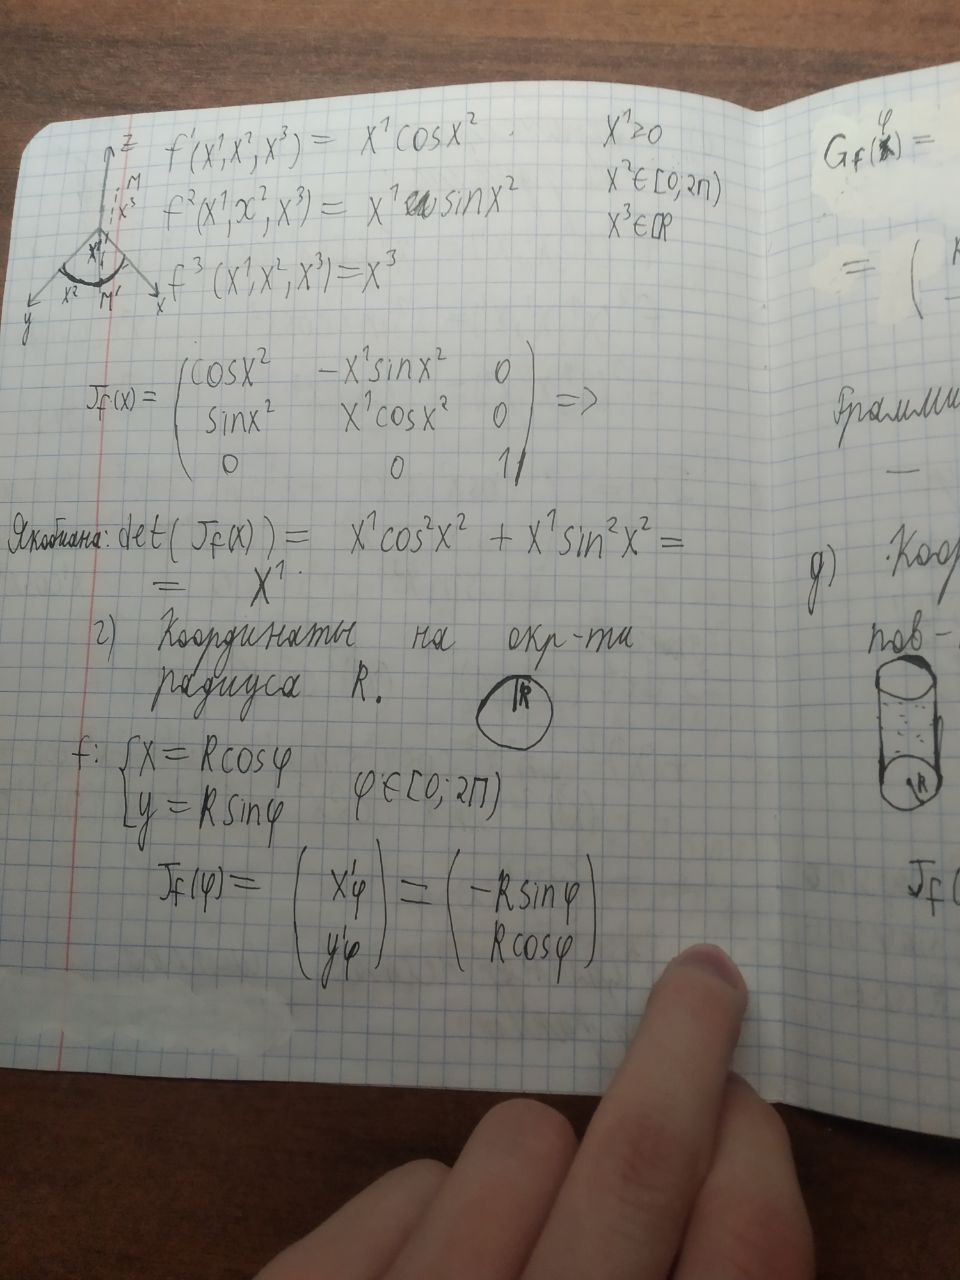 z
M
x³
x¹
x²
M'
y
x
f¹(x¹, x², x³) = x¹cosx²
x¹≥0
f²(x¹, x², x³) = x¹ sinx²
x²∈[0; 2π)
x³∈ℝ
f³(x¹, x², x³) = x³
J_f(x) = ( cosx² -x¹sinx² 0
sinx² x¹cosx² 0
0 0 1 ) =>
Якобиана: det(J_f(x)) = x¹cos²x² + x¹sin²x² =
= x¹.
г) Координаты на окр-ти
радиуса R.
R
f: { x = Rcosφ
y = Rsinφ φ∈[0; 2π)
J_f(φ) = ( x'φ
y'φ ) = ( -Rsinφ
Rcosφ )
G_f(φ) =
= (
—
д)
пов-
R
J_f(